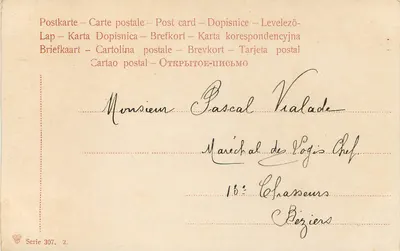 Postkarte – Carte postale – Post card – Dopisnice – Levelező-
Lap – Karta Dopisnica – Brefkort – Karta korespondencyjna
Briefkaart – Cartolina postale – Brevkort – Tarjeta postal
Cartao postal – Открытое-письмо
Monsieur Pascal Vialade
Maréchal des Logis Chef
18e Chasseurs
Béziers
Serie 397. 2.